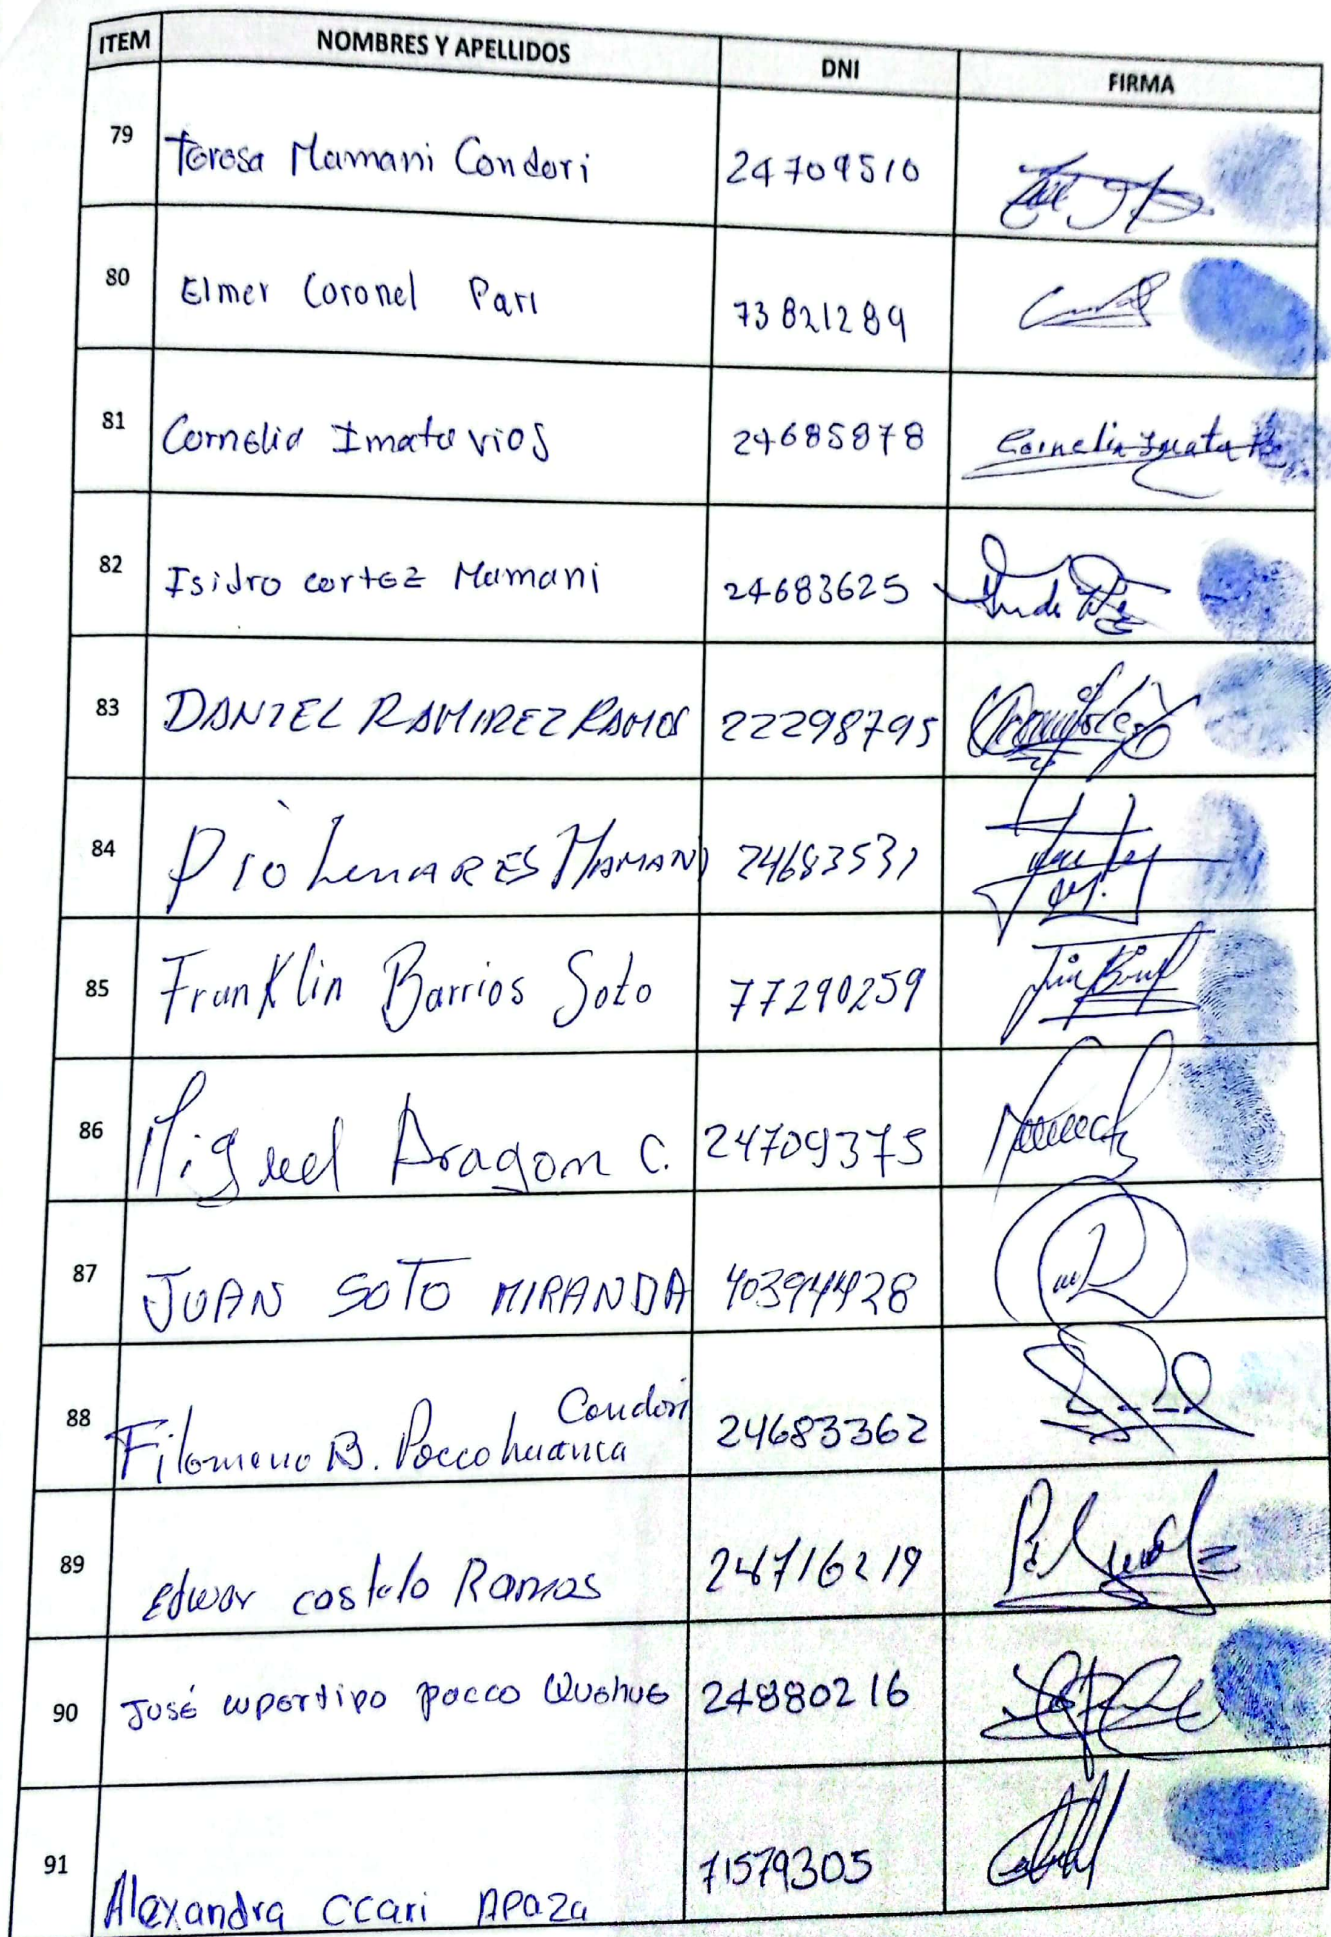 ITEM NOMBRES Y APELLIDOS DNI FIRMA
79 Teresa Mamani Condori 24709510
80 Elmer Coronel Pari 73821289
81 Cornelia Imata vios 24685878 Cornelia Imata
82 Isidro cortez Mamani 24683625
83 DANIEL RAMIREZ RAMOS 22298795
84 Pio LinARES MAMANI 24683531
85 Franklin Barrios Soto 77290259
86 Miguel Aragon C. 24709375
87 JUAN SOTO MIRANDA 40394428
Condori
88 Filomeno B. Poccohuanca 24683362
89 Edwar castelo Ramos 24716219
90 José pocco 24880216
91 Alexandra CCari APaza 71579305